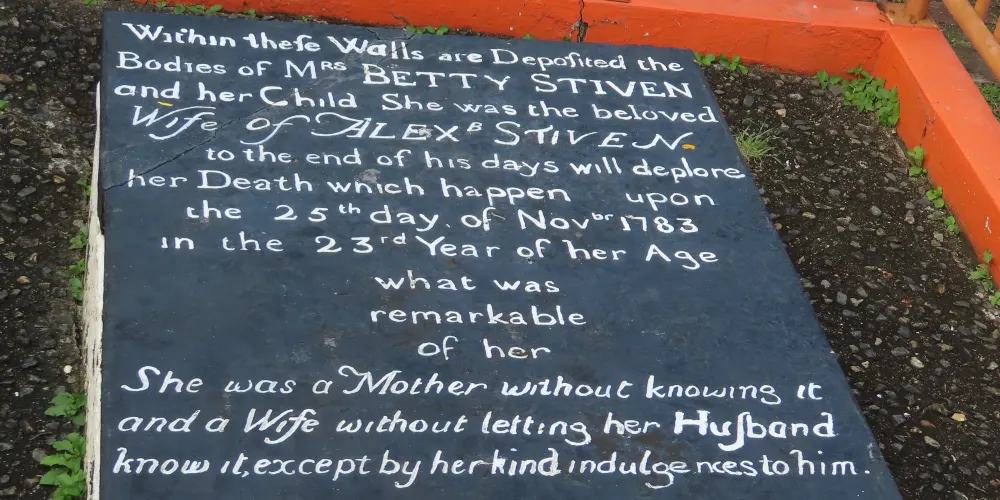 Within theſe Walls are Depoſited the
Bodies of Mrs BETTY STIVEN
and her Child She was the beloved
Wife of ALEXB STIVEN
to the end of his days will deplore
her Death which happen upon
the 25th day. of Novbr 1783
in the 23rd Year of her Age
what was
remarkable
of her
She was a Mother without knowing it
and a Wife without letting her Huſband
know it, except by her kind indulgences to him.